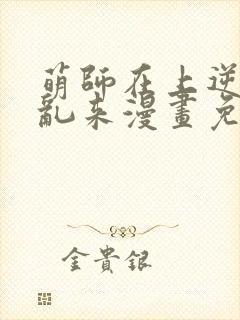 萌師在上逆
亂來漫畫免
金貴銀